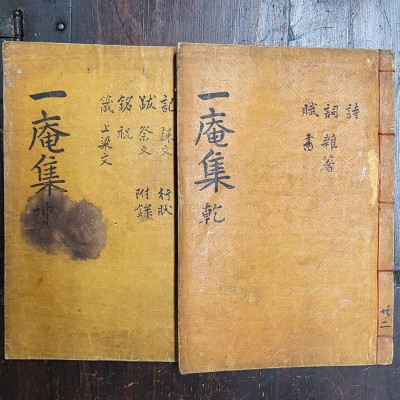 詩
詞 雜著
賦 書
一庵集 乾
共二
記 誄文 行狀
跋 祭文 附錄
銘 祝
箴 上梁文
一庵集 坤